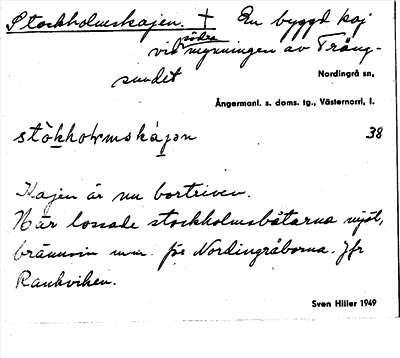 Stockholmskajen. † En byggd kaj
vid södra mynningen av Trång-
sundet
Nordingrå sn,
Ångermanl. s. doms. tg., Västernorrl, l.
stòkholmskájən 38
Kajen är nu bortriven.
Här lossade stockholmsbåtarna mjöl,
brännvin m.m. för Nordingråborna. Jfr
Rankviken.
Sven Hiller 1949